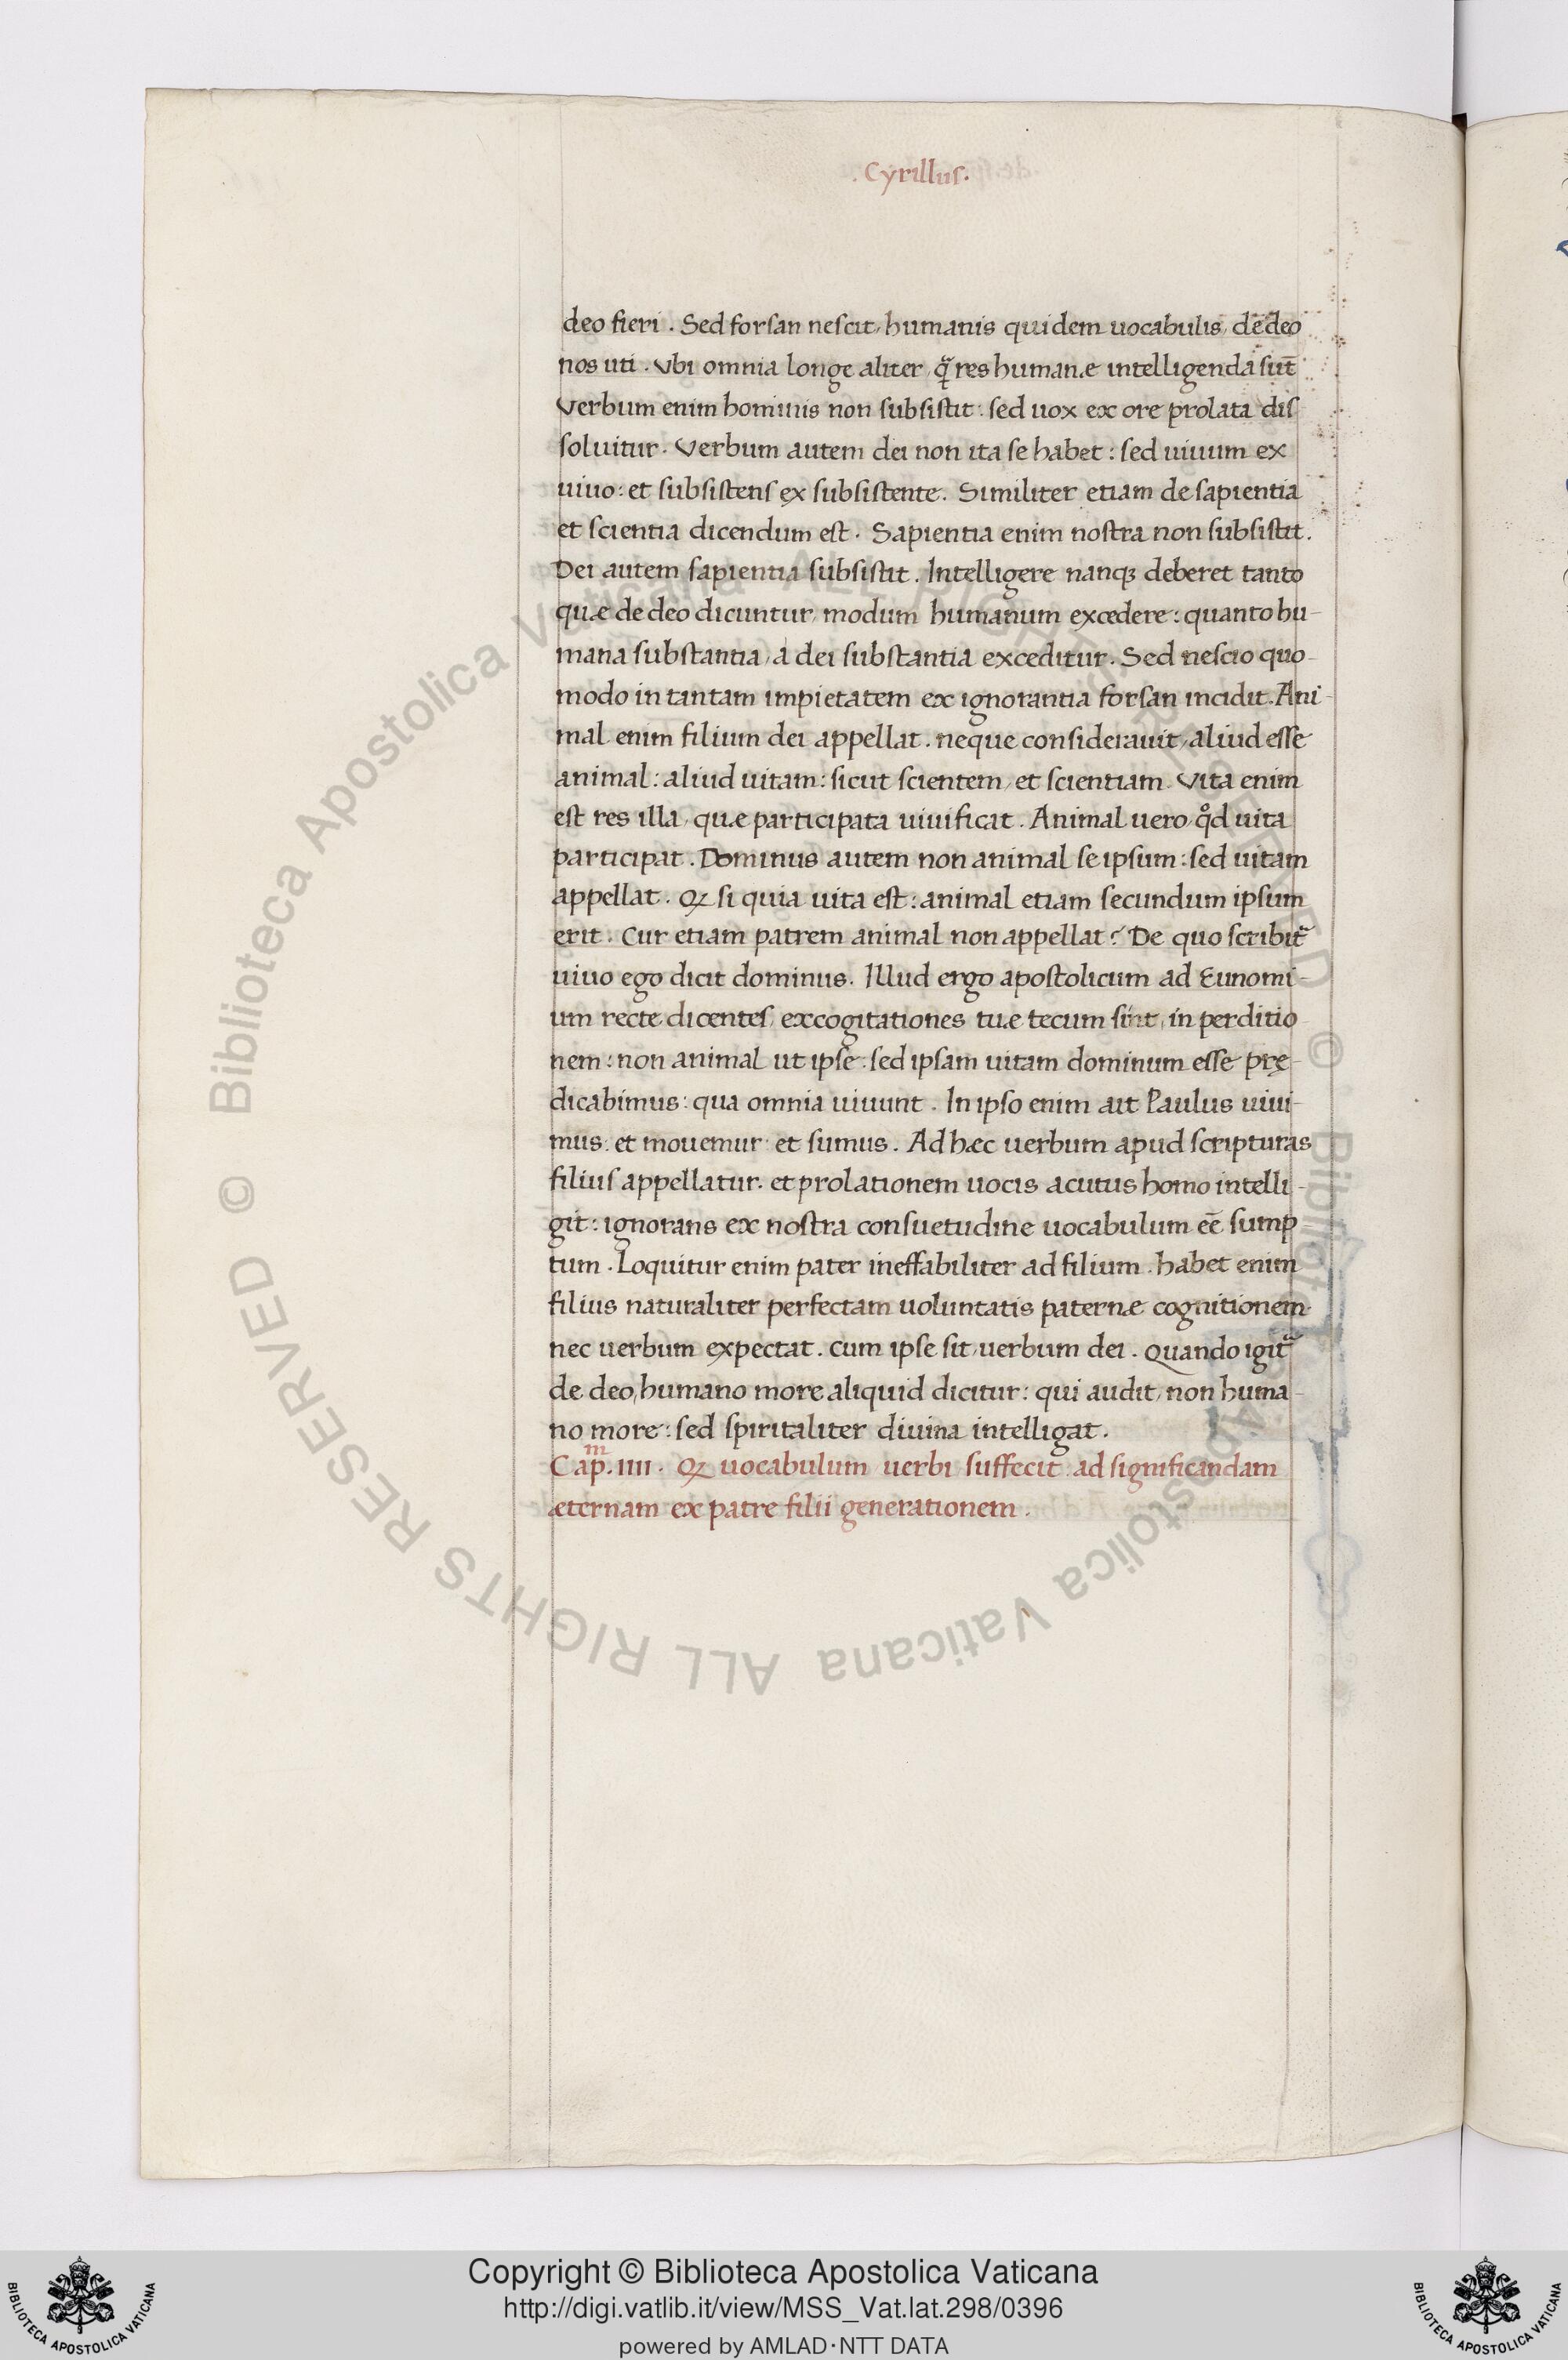 . Cyrillus.
deo fieri . Sed forsan nescit, humanis quidem uocabulis, de deo
nos uti . Vbi omnia longe aliter, q̃ res humanæ intelligenda sūt
Verbum enim hominis non subsistit : sed uox ex ore prolata dis
soluitur . Verbum autem dei non ita se habet : sed uiuum ex
uiuo : et subsistens ex subsistente . Similiter etiam de sapientia
et scientia dicendum est . Sapientia enim nostra non subsistit .
Dei autem sapientia subsistit . Intelligere nanqꝫ deberet tanto
quæ de deo dicuntur, modum humanum excedere : quanto hu-
mana substantia, a dei substantia exceditur . Sed nescio quo-
modo in tantam impietatem ex ignorantia forsan incidit . Ani-
mal enim filium dei appellat . neque considerauit, aliud esse
animal : aliud uitam : sicut scientem, et scientiam . Vita enim
est res illa, quæ participata uiuificat . Animal uero, qͦd uita
participat . Dominus autem non animal se ipsum : sed uitam
appellat . Qꝫ si quia uita est : animal etiam secundum ipsum
erit . Cur etiam patrem animal non appellat ? De quo scribit᷑
uiuo ego dicit dominus . Illud ergo apostolicum ad Eunomi-
um recte dicentes, excogitationes tuæ tecum sint, in perditio
nem : non animal ut ipse : sed ipsam uitam dominum esse prę-
dicabimus : qua omnia uiuunt . In ipso enim ait Paulus uiui-
mus : et mouemur : et sumus . Ad hæc uerbum apud scripturas
filius appellatur . et prolationem uocis acutus homo intelli-
git : ignorans ex nostra consuetudine uocabulum eē sump
tum . Loquitur enim pater ineffabiliter ad filium . habet enim
filius naturaliter perfectam uoluntatis paternæ cognitionem .
nec uerbum expectat . cum ipse sit, uerbum dei . Quando igit᷑
de deo, humano more aliquid dicitur : qui audit, non huma-
no more : sed spiritaliter diuina intelligat .
Cap.ᵐ IIII . Qꝫ uocabulum uerbi suffecit ad significandam
æternam ex patre filii generationem .
© Biblioteca Apostolica Vaticana ALL RIGHTS RESERVED © Biblioteca Apostolica Vaticana ALL RIGHTS RESERVED
BIBLIOTECA APOSTOLICA VATICANA
Copyright © Biblioteca Apostolica Vaticana
http://digi.vatlib.it/view/MSS_Vat.lat.298/0396
powered by AMLAD·NTT DATA
BIBLIOTECA APOSTOLICA VATICANA